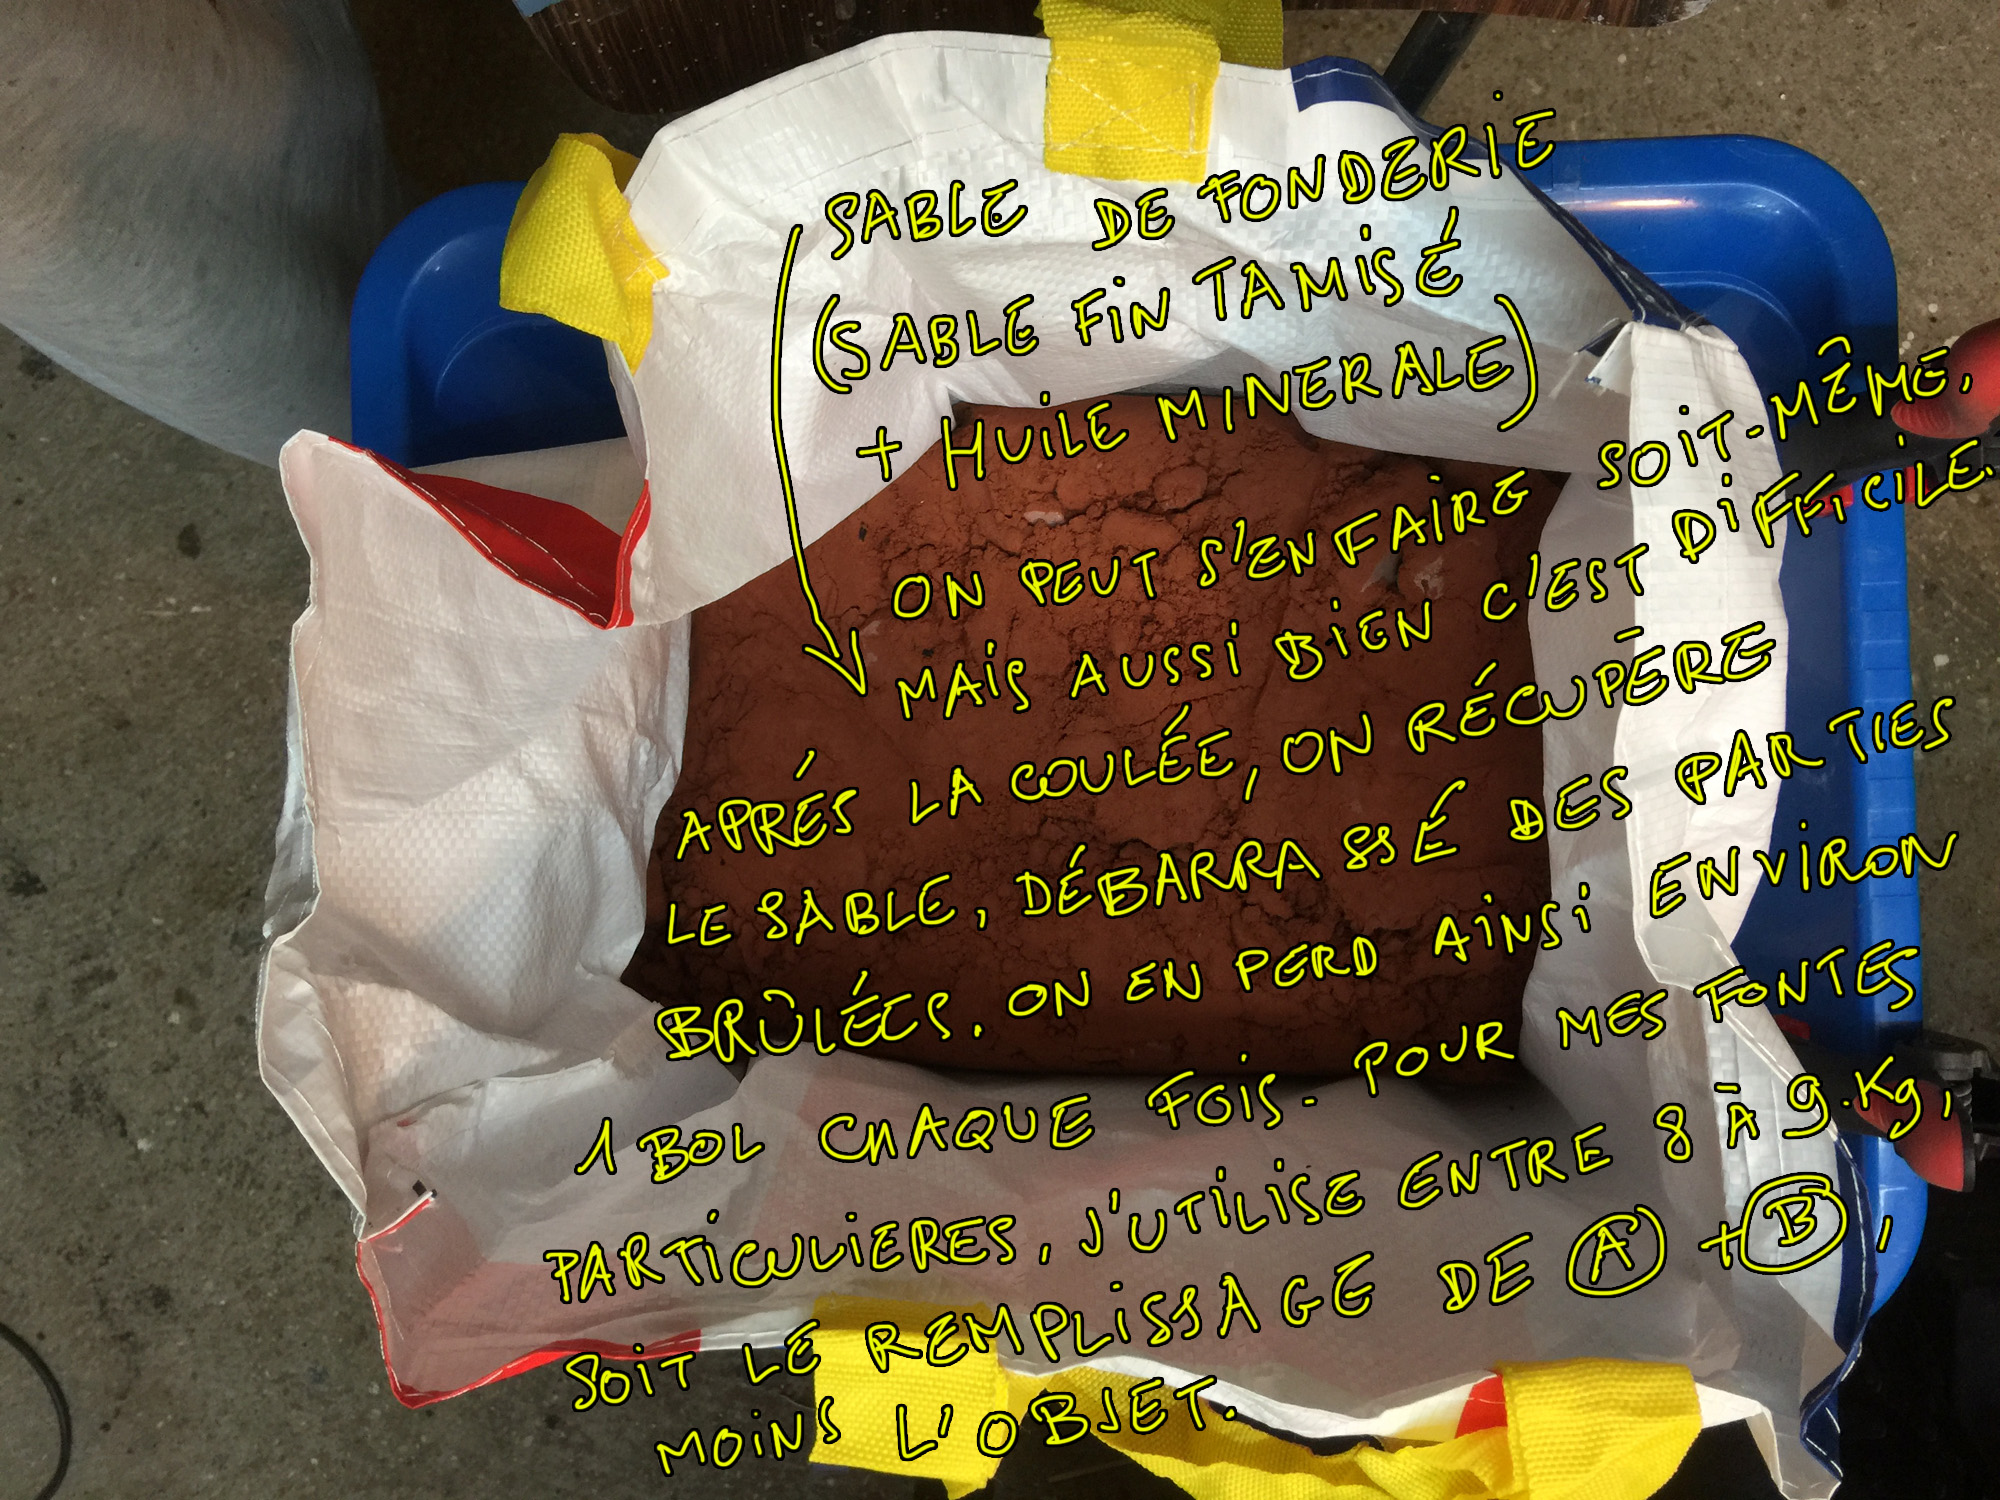 SABLE DE FONDERIE
(SABLE FIN TAMISÉ
+ HUILE MINERALE)
ON PEUT S'EN FAIRE SOIT-MÊME,
MAIS AUSSI BIEN C'EST DIFFICILE.
APRÉS LA COULÉE, ON RÉCUPÈRE
LE SABLE, DÉBARRASSÉ DES PARTIES
BRÛLÉES. ON EN PERD AINSI ENVIRON
1 BOL CHAQUE FOIS. POUR MES FONTES
PARTICULIERES, J'UTILISE ENTRE 8 À 9.Kg,
SOIT LE REMPLISSAGE DE A + B,
MOINS L'OBJET.